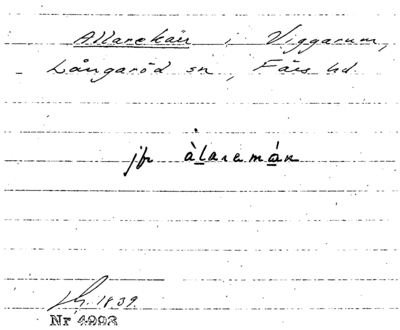 Allarekärr i Viggarum,
Långaröd sn, Färs hd.
jfr àlaremán
1839.
Nr 4993